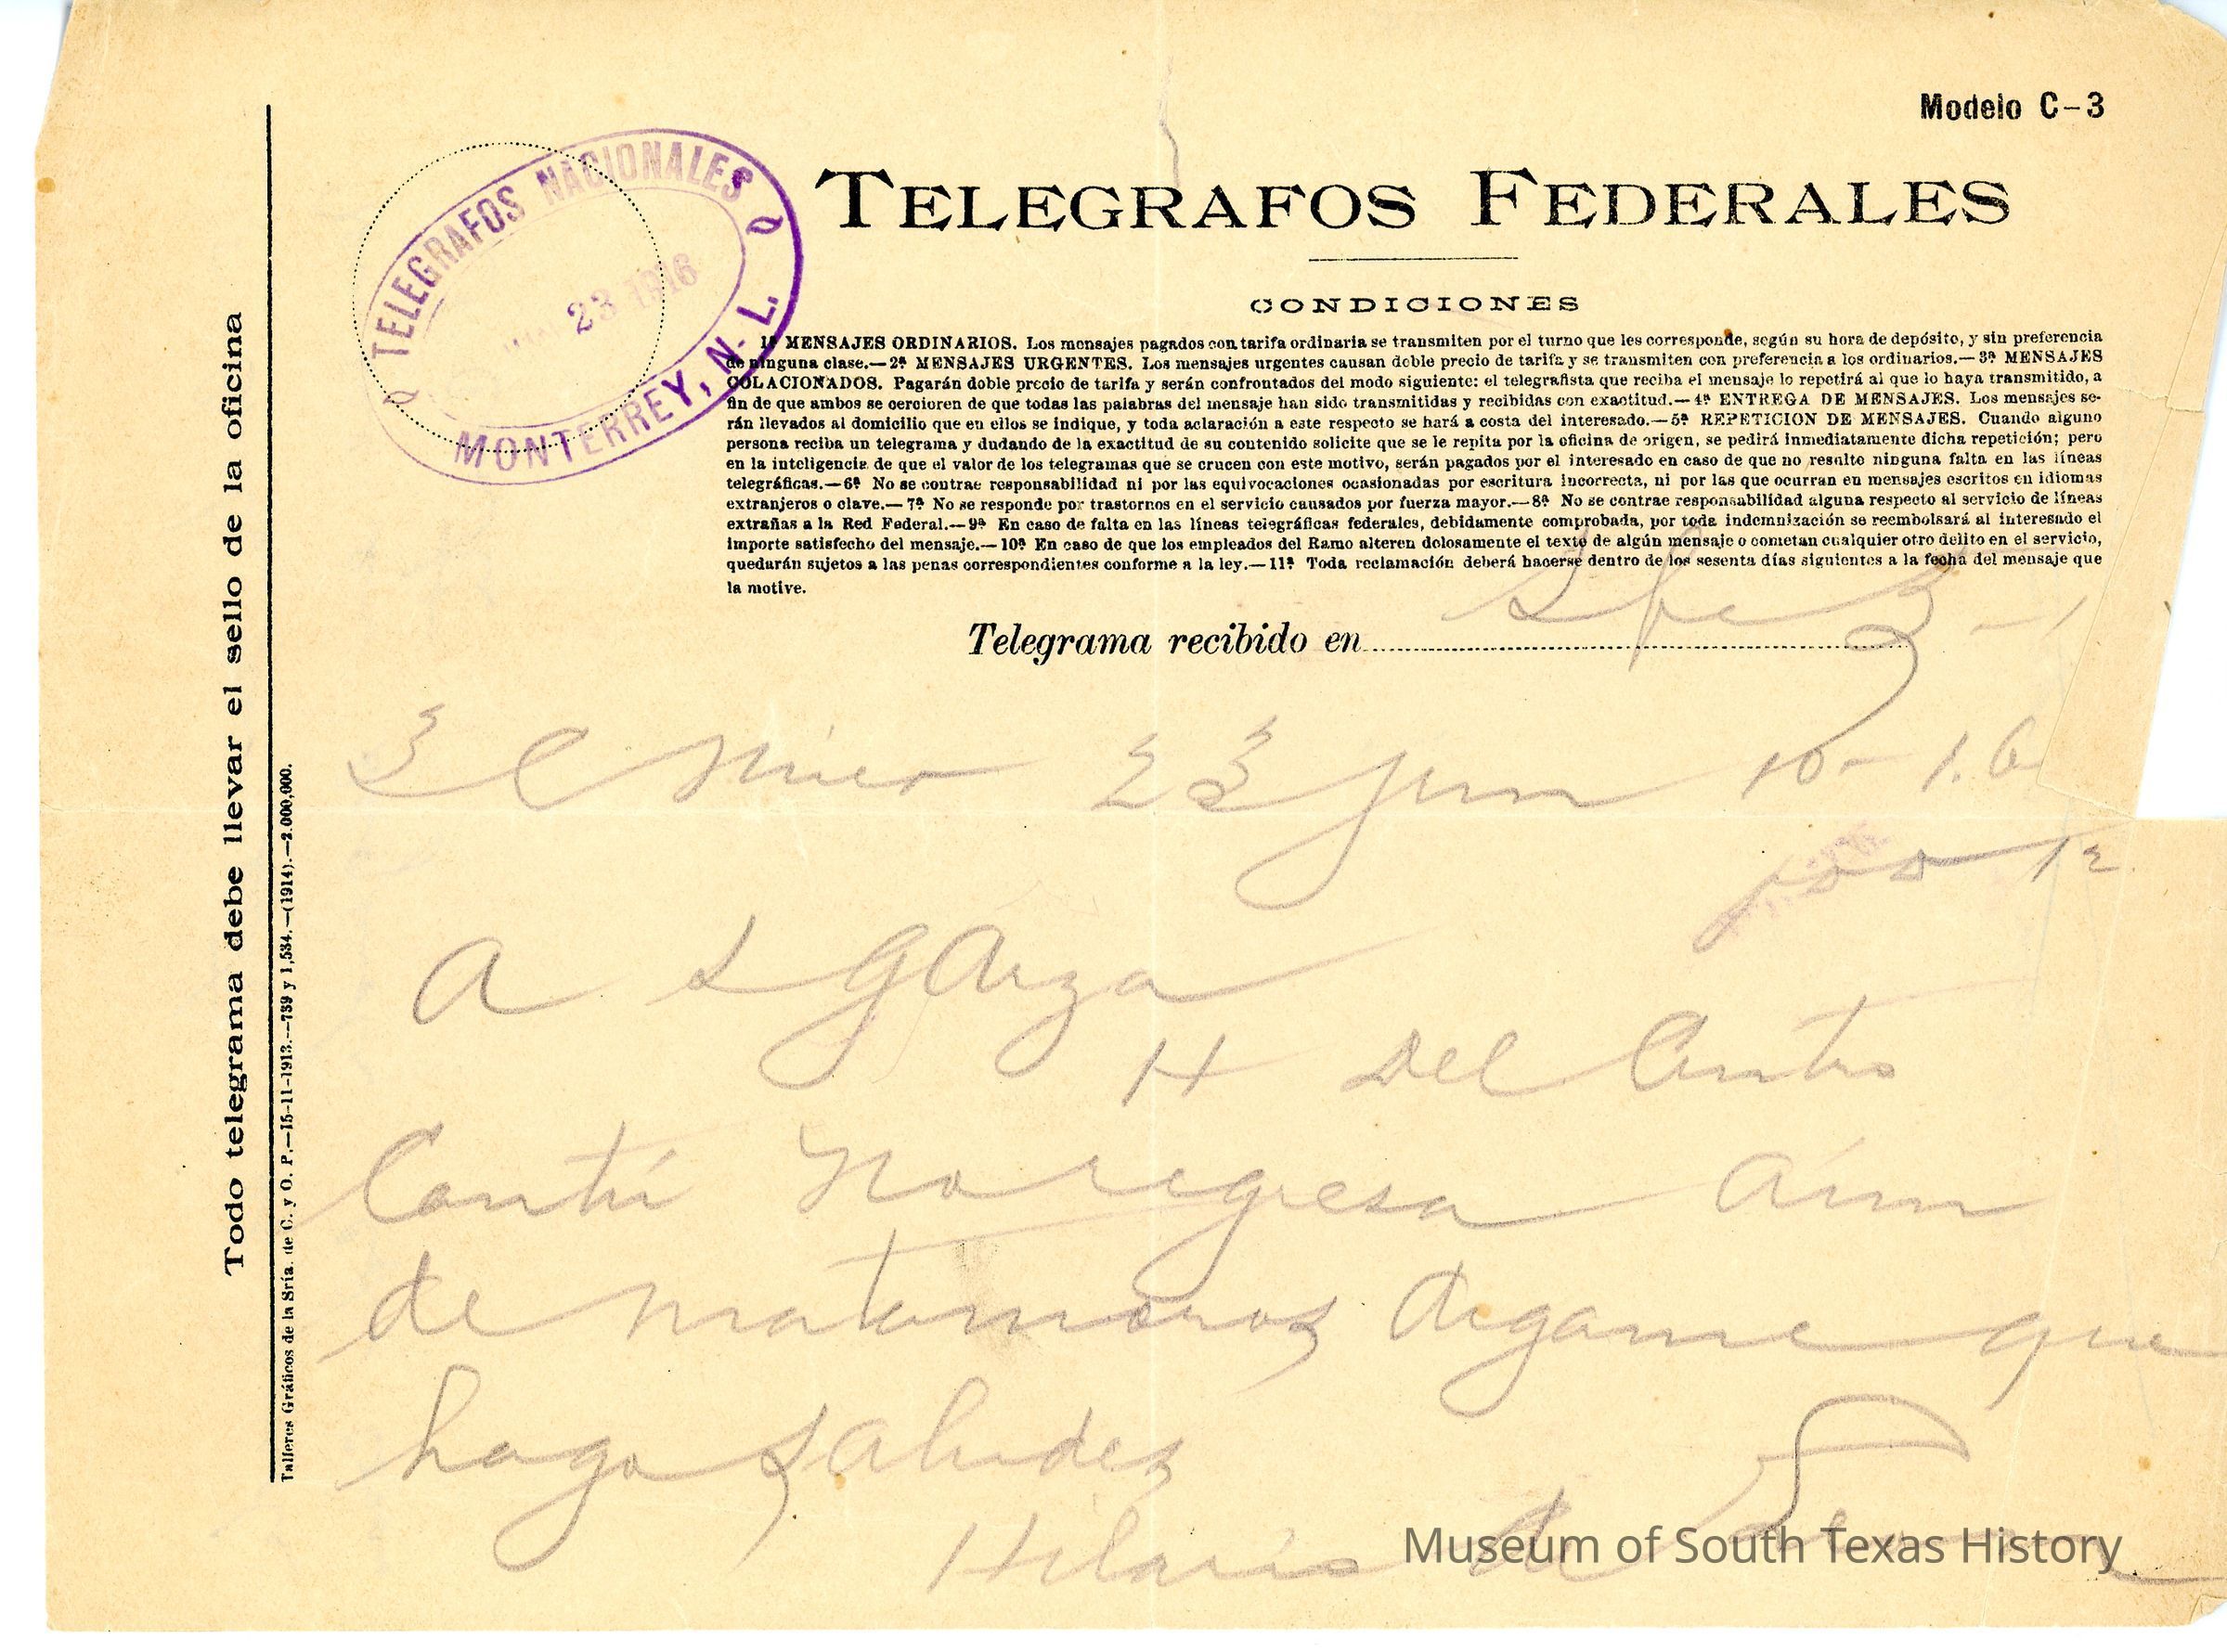 Modelo C-3
TELEGRAFOS NACIONALES
23 1916
MONTERREY, N. L.
TELEGRAFOS FEDERALES
CONDICIONES
1ª MENSAJES ORDINARIOS. Los mensajes pagados con tarifa ordinaria se transmiten por el turno que les corresponde, según su hora de depósito, y sin preferencia
de ninguna clase.—2ª MENSAJES URGENTES. Los mensajes urgentes causan doble precio de tarifa y se transmiten con preferencia a los ordinarios.—3ª MENSAJES
COLACIONADOS. Pagarán doble precio de tarifa y serán confrontados del modo siguiente: el telegrafista que reciba el mensaje lo repetirá al que lo haya transmitido, a
fin de que ambos se cercioren de que todas las palabras del mensaje han sido transmitidas y recibidas con exactitud.—4ª ENTREGA DE MENSAJES. Los mensajes se-
rán llevados al domicilio que en ellos se indique, y toda aclaración a este respecto se hará a costa del interesado.—5ª REPETICION DE MENSAJES. Cuando alguno
persona reciba un telegrama y dudando de la exactitud de su contenido solicite que se le repita por la oficina de origen, se pedirá inmediatamente dicha repetición; pero
en la inteligencia de que el valor de los telegramas que se crucen con este motivo, serán pagados por el interesado en caso de que no resulte ninguna falta en las líneas
telegráficas.—6ª No se contrae responsabilidad ni por las equivocaciones ocasionadas por escritura incorrecta, ni por las que ocurran en mensajes escritos en idiomas
extranjeros o clave.—7ª No se responde por trastornos en el servicio causados por fuerza mayor.—8ª No se contrae responsabilidad alguna respecto al servicio de líneas
extrañas a la Red Federal.—9ª En caso de falta en las líneas telegráficas federales, debidamente comprobada, por toda indemnización se reembolsará al interesado el
importe satisfecho del mensaje.—10ª En caso de que los empleados del Ramo alteren dolosamente el texto de algún mensaje o cometan cualquier otro delito en el servicio,
quedarán sujetos a las penas correspondientes conforme a la ley.—11ª Toda reclamación deberá hacerse dentro de los sesenta días siguientes a la fecha del mensaje que
la motive.
Telegrama recibido en
3 C Mier 23 Jun 10- 1.6
12.
A L G Garza
H Del Centro
Cantú no regresa aún
de matamoros digame que
hago Saludes
Hilario de Leon
Todo telegrama debe llevar el sello de la oficina
Talleres Gráficos de la Sría. de C. y O. P.—15-11-1913.—739 y 1,534.—(1914).—2.000,000.
Museum of South Texas History